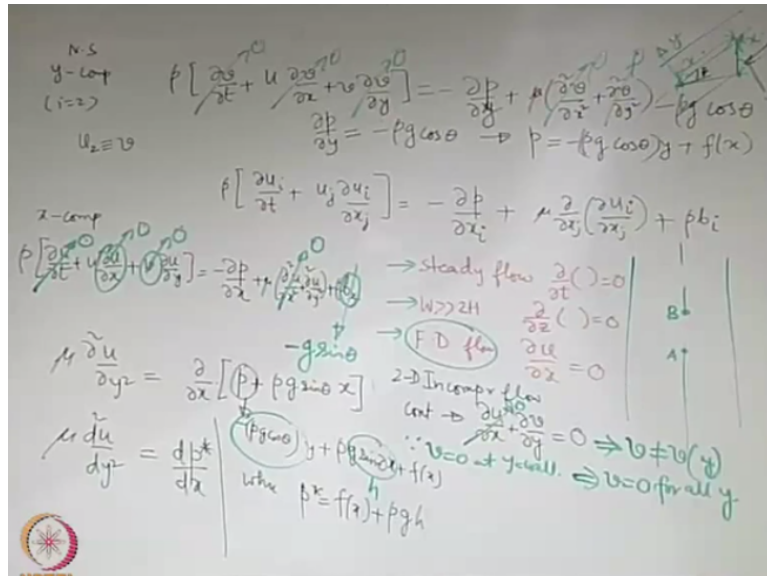 N-S
y-comp
(i=2)
u₂ ≡ v
ρ[∂v/∂t→0 + u ∂v/∂x→0 + v ∂v/∂y→0] = -∂p/∂y + μ(∂²v/∂x²→0 + ∂²v/∂y²→0) - ρg cosθ
∂p/∂y = -ρg cosθ → p = -(ρg cosθ)y + f(x)
ρ[∂uᵢ/∂t + uⱼ ∂uᵢ/∂xⱼ] = -∂p/∂xᵢ + μ ∂/∂xⱼ(∂uᵢ/∂xⱼ) + ρbᵢ
x-comp
ρ[∂u/∂t→0 + u ∂u/∂x→0 + v→0 ∂u/∂y] = -∂p/∂x + μ(∂²u/∂x²→0 + ∂²u/∂y²) + ρbₓ
-g sinθ
→ steady flow ∂/∂t( )=0
→ W>>2H ∂/∂z( )=0
→ FD flow ∂u/∂x = 0
B
A
μ ∂²u/∂y² = ∂/∂x[p + ρg sinθ x]
2-D Incompr flow
cont → ∂u/∂x→0 + ∂v/∂y = 0 ⇒ v ≠ v(y)
∵ v=0 at y=wall ⇒ v=0 for all y
μ d²u/dy² = dp*/dx
(ρg cosθ) y + ρg sinθ x + f(x)
h
where p* = f(x) + ρgh